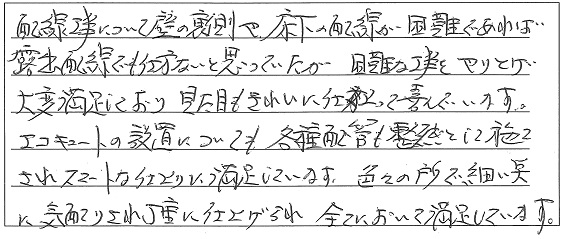 配線工事について壁の裏側や、床下の配線が困難であれば
露出配線でも仕方ないと思っていたが 困難な工事をやりとげ
大変満足しており 見た目もきれいに仕上って喜んでいます。
エコキュートの設置についても 各種配管も整然として施工
されスマートな仕上りに満足しています。色々の所で、細い点
に気配りされ丁寧に仕上げられ 全てにおいて満足しています。